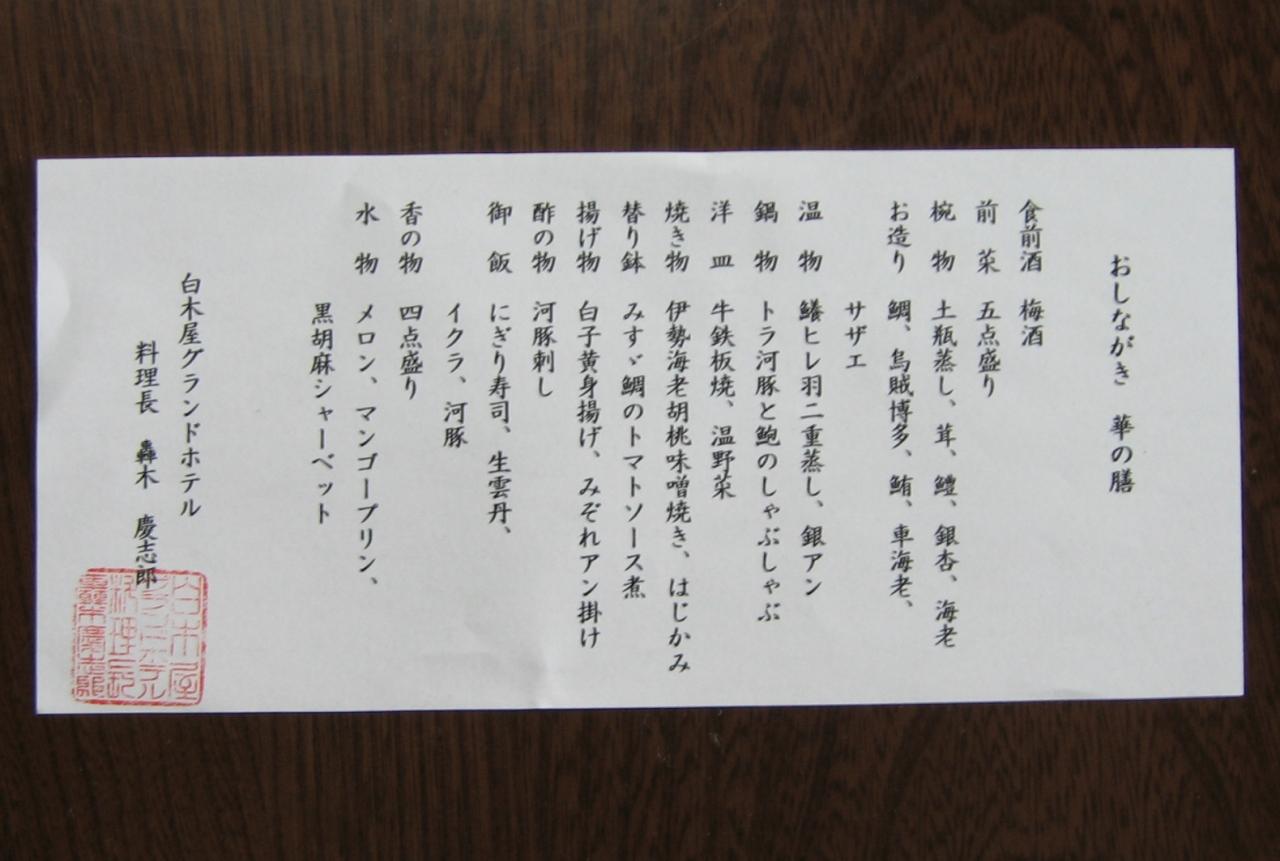 おしながき 華の膳
食前酒 梅酒
前菜 五点盛り
椀物 土瓶蒸し、茸、鱧、銀杏、海老
お造り 鯛、烏賊博多、鮪、車海老、
サザエ
温物 鱶ヒレ羽二重蒸し、銀アン
鍋物 トラ河豚と鮑のしゃぶしゃぶ
洋皿 牛鉄板焼、温野菜
焼き物 伊勢海老胡桃味噌焼き、はじかみ
替り鉢 みすゞ鯛のトマトソース煮
揚げ物 白子黄身揚げ、みぞれアン掛け
酢の物 河豚刺し
御飯 にぎり寿司、生雲丹、
イクラ、河豚
香の物 四点盛り
水物 メロン、マンゴープリン、
黒胡麻シャーベット
白木屋グランドホテル
料理長 轟木 慶志郎
白木屋
グランドホテル
料理長
轟木慶志郎